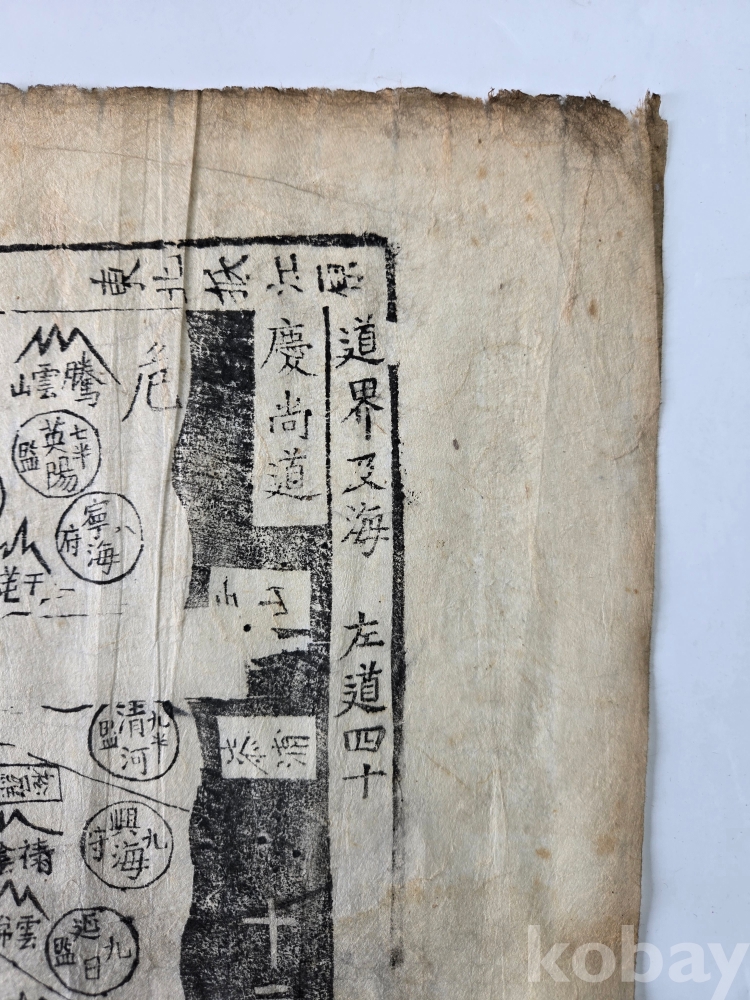 東北抵江原
道界及海 左道四十
慶尚道
危
騰雲山
七半
英陽
監
八
寧海
府
九半
清河
監
九
興海
守
九
迎日
監
十二
kobay